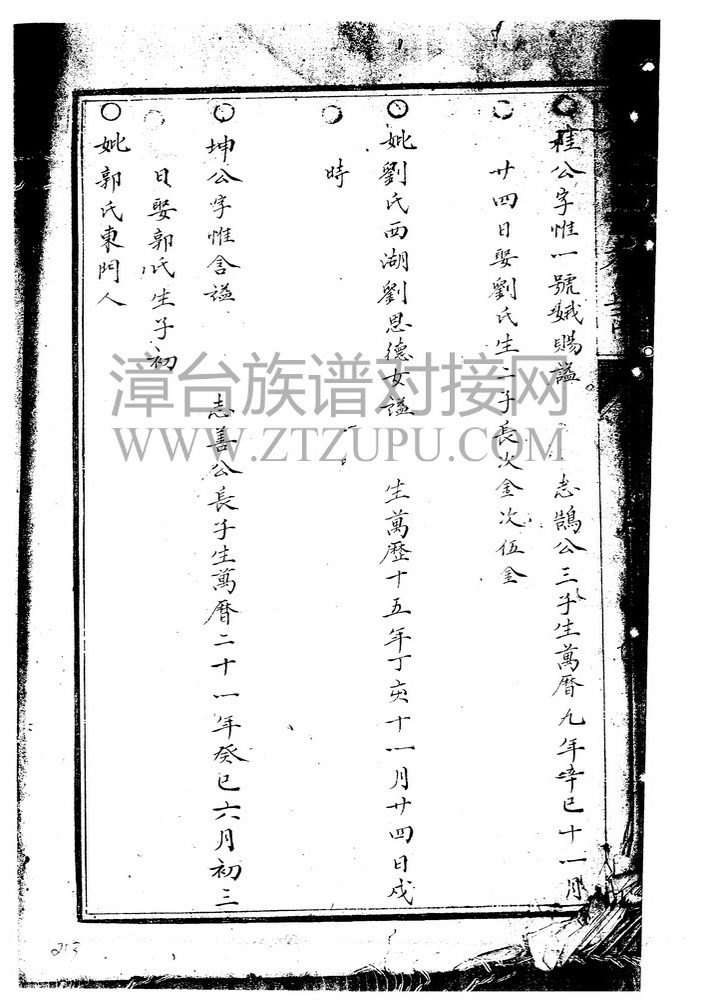 桂公字惟一號娥賜謚 志鵠公三子生萬曆九年辛巳十一月
廿四日娶劉氏生二子長次金次伍金
妣劉氏西湖劉思德女謚 生萬歷十五年丁亥十一月廿四日戍
時
坤公字惟含謚 志善公長子生萬曆二十一年癸巳六月初三
日娶郭氏生子初
妣郭氏東門人
漳台族谱对接网
WWW.ZTZUPU.COM
213